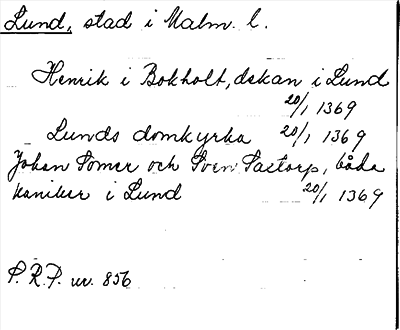 Lund, stad i Malm. l.
Henrik i Bokholt, dekan i Lund
20/1 1369
Lunds domkyrka 20/1 1369
Johan Somer och Sven Sastorp, båda
kaniker i Lund 20/1 1369
P.R.P. nr. 856